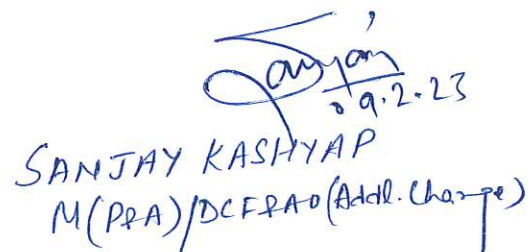 Sanjay
09.2.23
SANJAY KASHYAP
M(P&A)/DCF&AO(Addl. Charge)